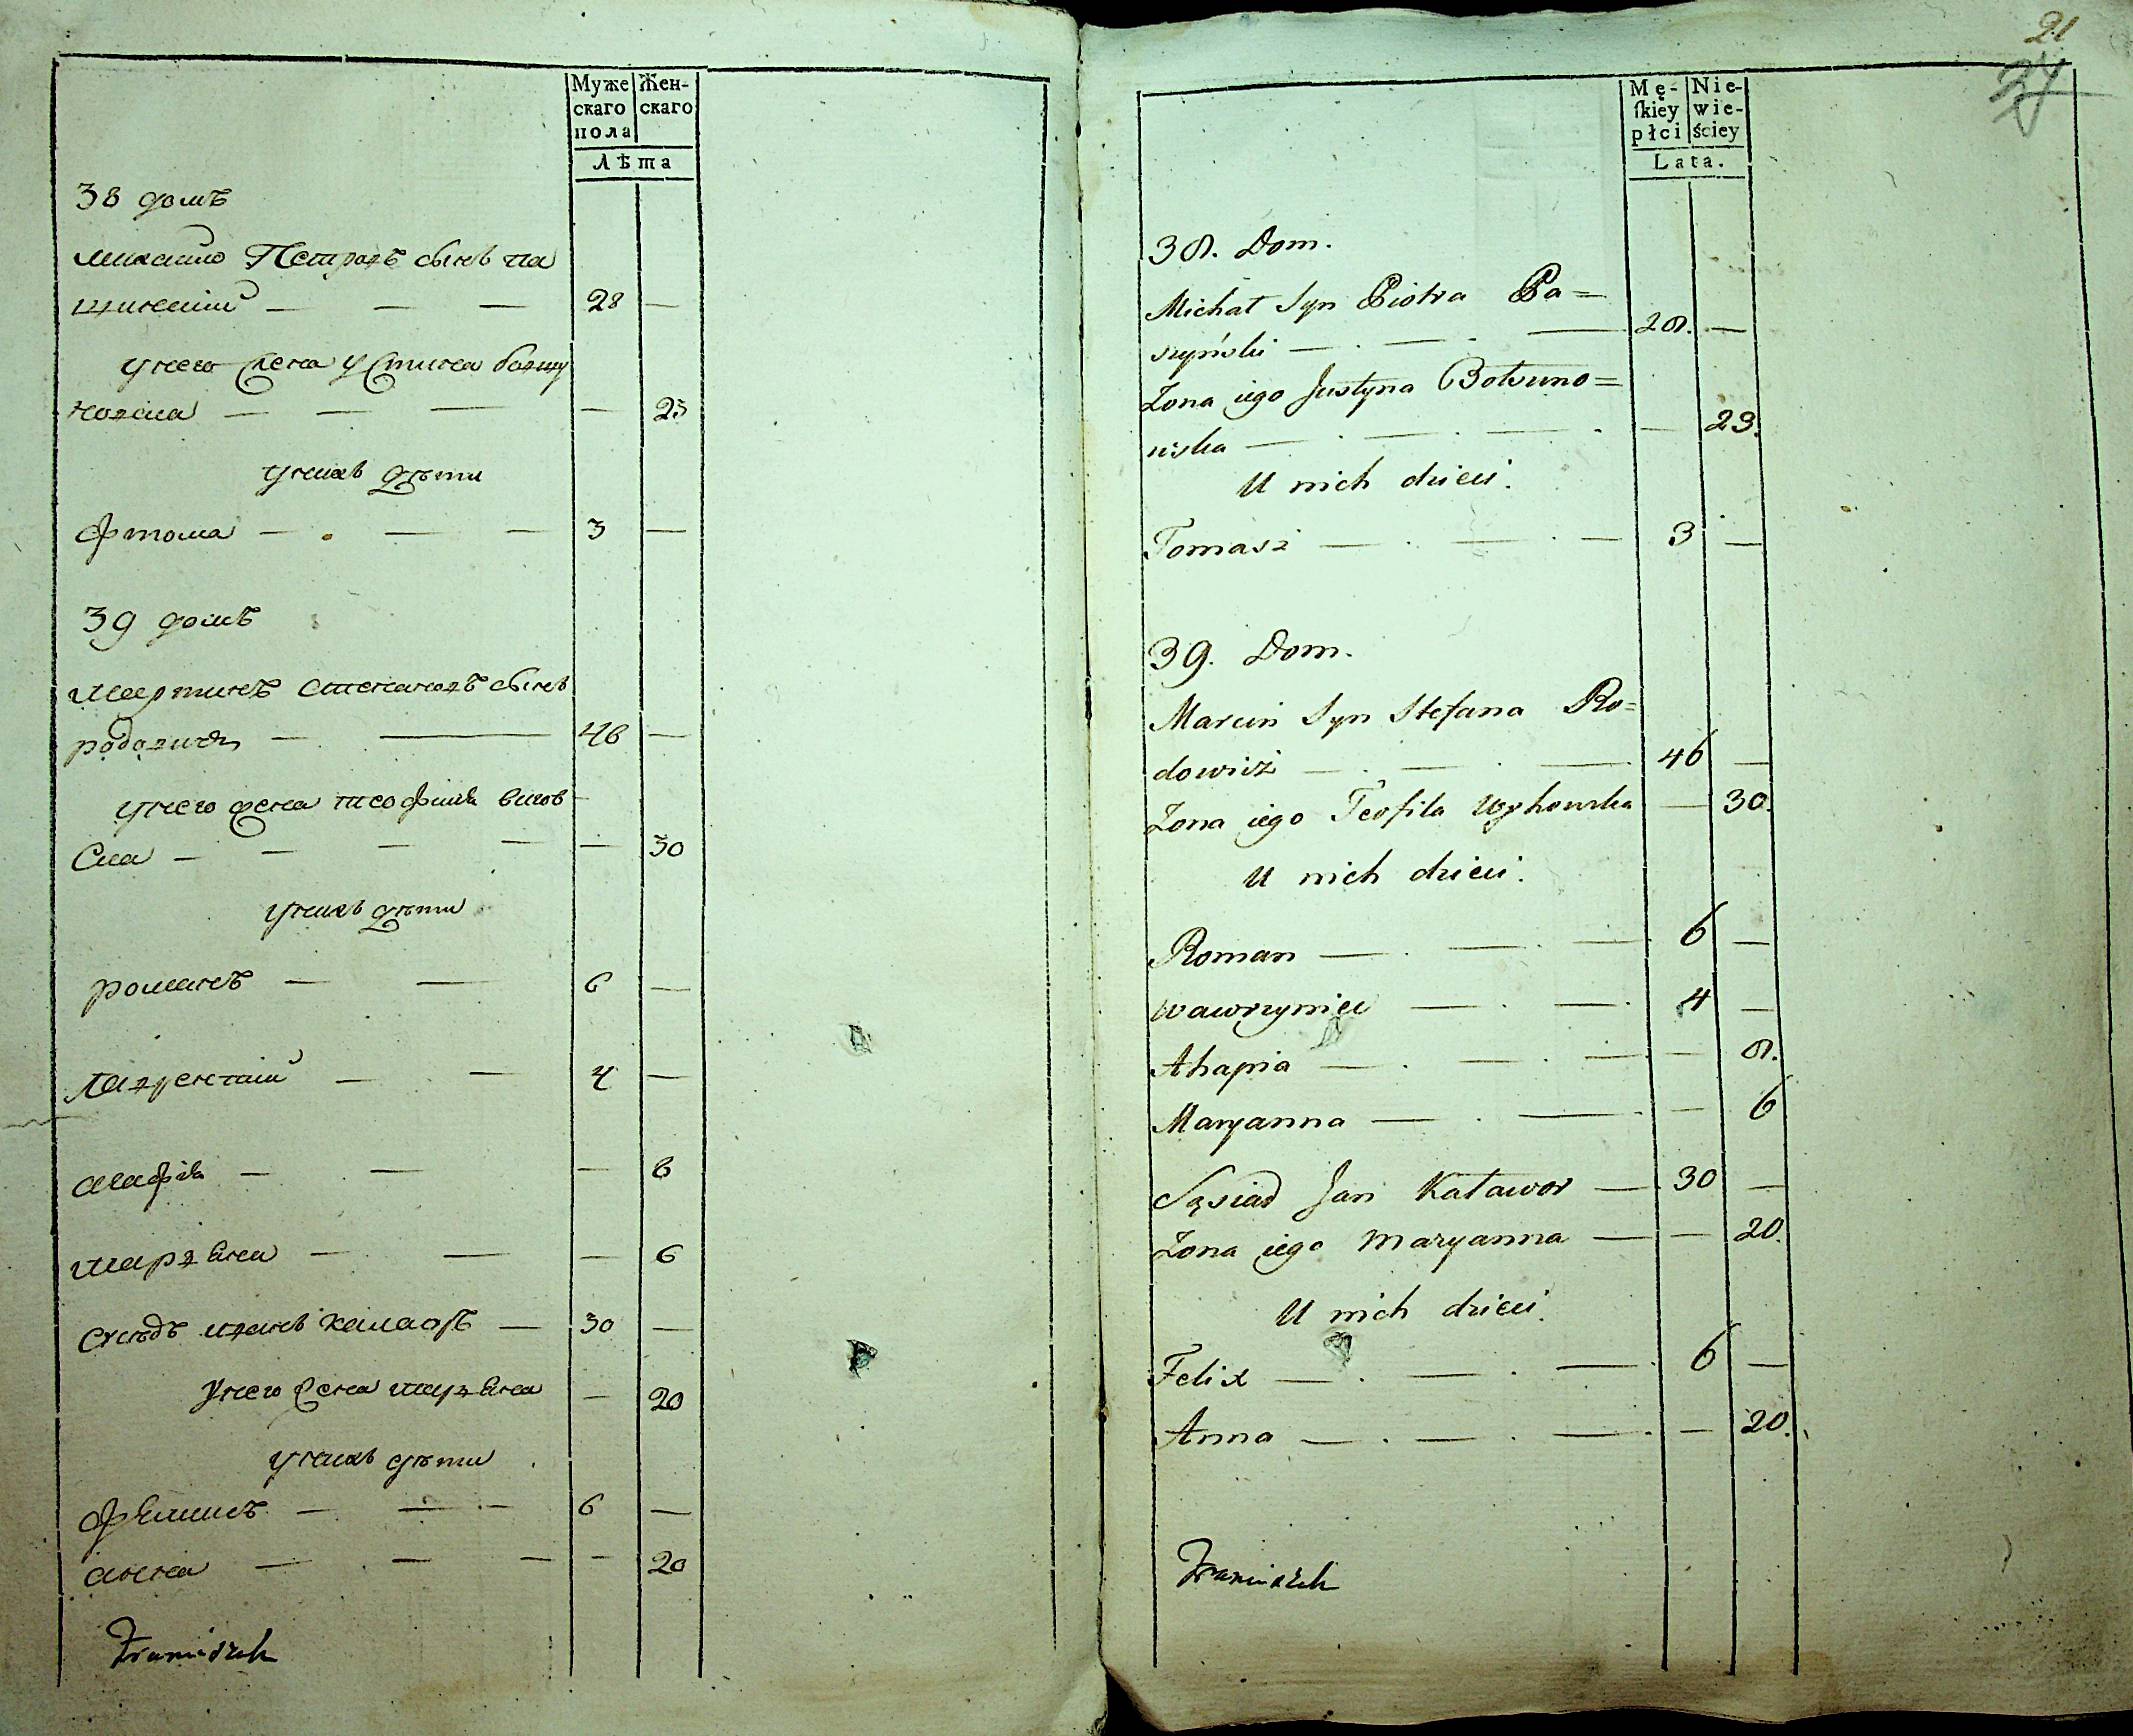 Муже
скаго
пола
Жен-
скаго
Лѣта
38 домъ
Михайло Петровъ сынъ па
щинскiй — — — 28 —
у него жена Устина
— — — — 23
у нихъ дѣти
Фтома — — — 3 —
39 домъ
Мартинъ Степановъ сынъ
родовичъ — — 46 —
у него жена теофиля вигов
ска — — — — — 30
у нихъ дѣти
романъ — — 6 —
Лаврентiй — — 4 —
агафiя — — — 8
марѣяна — — — 6
сусѣдъ иванъ — 30 —
у него жена марѣяна — 20
у нихъ дѣти
фѣликсъ — — — 6 —
анна — — — — 20
Franciszek
21
27
Mę-
ſkiey
płci
Nie-
wie-
ściey
Lata.
38. Dom.
Michał Syn Piotra Pa=
szyński — . — . — 28. —
Żona iego Justyna Botwino=
wska — . — . — . — 23.
U nich dzieci.
Tomasz — . — . — 3 —
39. Dom.
Marcin Syn Stefana Ro=
dowicz — . — . — 46 —
Żona iego Teofila Wyhowska — 30.
U nich dzieci.
Roman — . — . — 6 —
Wawrzyniec — . — . 4 —
Ahapia — . — . — — 8.
Maryanna — . — . — 6
Sąsiad Jan Kaławor — 30 —
Żona iego Maryanna — — 20.
U nich dzieci.
Felix — . — . — . 6 —
Anna — . — . — . — 20.
Franciszek